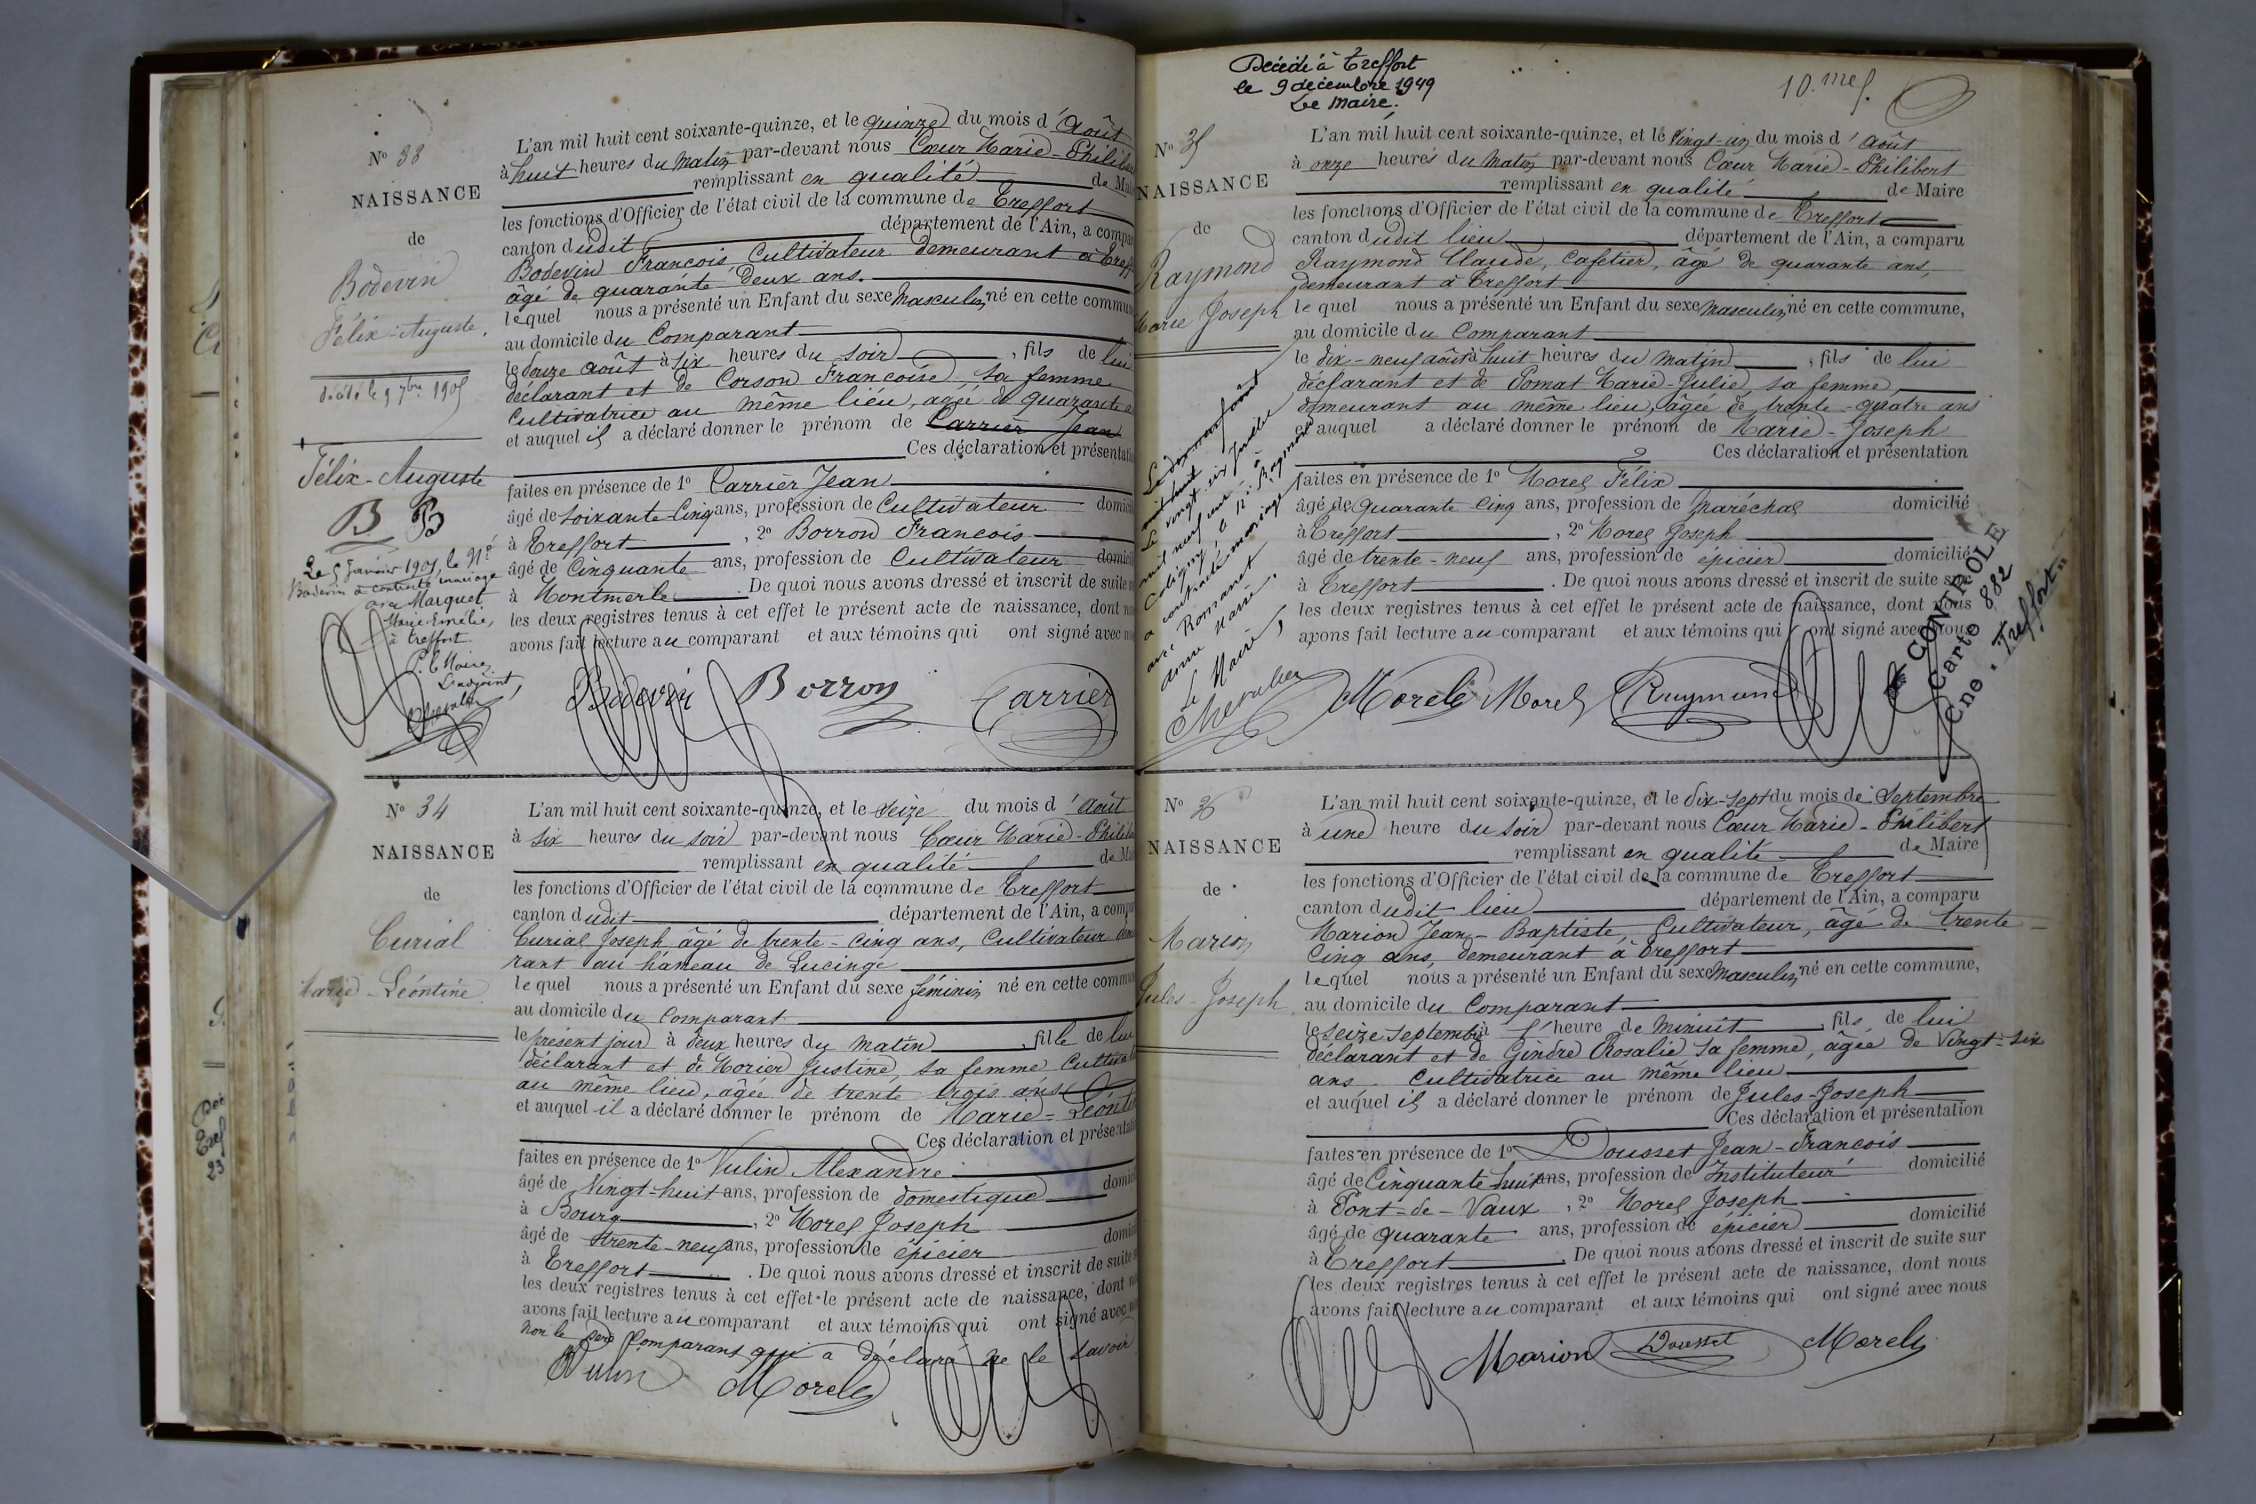 N° 33
NAISSANCE
de
Bodevin
Félix-Auguste.
décédé le 9 7bre 1905
Félix-Auguste
B B
Le 5 Janvier 1905, le Né
Bodevin a contracté mariage
avec Marquet
Marie-Emélie,
à Treffort.
P. le Maire,
L'adjoint,
L'an mil huit cent soixante-quinze, et le quinze du mois d'Août
à huit heures du Matin par-devant nous Cœur Marie-Philibe
remplissant en qualité de Mai
les fonctions d'Officier de l'état civil de la commune de Treffort
canton dudit département de l'Ain, a compar
Bodevin François Cultivateur demeurant à Treff
âgé de quarante deux ans.
lequel nous a présenté un Enfant du sexe Masculin né en cette commun
au domicile du Comparant
le douze août à six heures du soir, fils de lui
déclarant et de Corson Françoise, sa femme
Cultivatrice au même lieu, agée de quarante
et auquel il a déclaré donner le prénom de Carrier Jean
Ces déclaration et présentati
faites en présence de 1° Carrier Jean
âgé de soixante-cinq ans, profession de Cultivateur domici
à Treffort, 2° Borron François
âgé de Cinquante ans, profession de Cultivateur domicil
à Montmerle. De quoi nous avons dressé et inscrit de suite
les deux registres tenus à cet effet le présent acte de naissance, dont n
avons fait lecture au comparant et aux témoins qui ont signé avec n
Bodevin Borron Carrier
N° 34
NAISSANCE
de
Curial
Marie-Léontine
L'an mil huit cent soixante-quinze, et le seize du mois d'Août
à six heures du soir par-devant nous Cœur Marie-Philibe
remplissant en qualité de Mai
les fonctions d'Officier de l'état civil de la commune de Treffort
canton dudit département de l'Ain, a compar
Curial Joseph âgé de trente-cinq ans, Cultivateur deme
rant au hameau de Lucinge
lequel nous a présenté un Enfant du sexe féminin né en cette commun
au domicile du Comparant
le présent jour à deux heures du matin, fille de lui
déclarant et de Morier Justine, sa femme Cultivat
au même lieu, âgée de trente trois ans
et auquel il a déclaré donner le prénom de Marie-Léonti
Ces déclaration et présentati
faites en présence de 1° Vulin Alexandre
âgé de Vingt-huit ans, profession de domestique domici
à Bourg, 2° Morel Joseph
âgé de trente-neuf ans, profession de épicier domici
à Treffort. De quoi nous avons dressé et inscrit de suite s
les deux registres tenus à cet effet le présent acte de naissance, dont n
avons fait lecture au comparant et aux témoins qui ont signé avec n
non le père Comparant qui a déclaré ne le savoir
Vulin Morel
Décédé à Treffort
le 9 décembre 1949
Le Maire.
10.mes.
N° 35
NAISSANCE
de
Raymond
Marie Joseph
Le
vingt-six Juillet
mil neuf cent
Coligny, le Né Raymond
a contracté mariage
avec Romanet
Marie.
Le Maire,
Chevalier
L'an mil huit cent soixante-quinze, et le Vingt-un du mois d'Août
à onze heures du Matin par-devant nous Cœur Marie-Philibert
remplissant en qualité de Maire
les fonctions d'Officier de l'état civil de la commune de Treffort
canton dudit lieu département de l'Ain, a comparu
Raymond Claude, Cafetier, âgé de quarante ans,
demeurant à Treffort
lequel nous a présenté un Enfant du sexe Masculin né en cette commune,
au domicile du Comparant
le dix-neuf août à huit heures du Matin, fils de lui
déclarant et de Pomat Marie-Julie, sa femme,
demeurant au même lieu, âgée de trente-quatre ans
et auquel a déclaré donner le prénom de Marie-Joseph
Ces déclaration et présentation
faites en présence de 1° Morel Félix
âgé de Quarante Cinq ans, profession de Maréchal domicilié
à Treffort, 2° Morel Joseph
âgé de trente-neuf ans, profession de épicier domicilié
à Treffort. De quoi nous avons dressé et inscrit de suite sur
les deux registres tenus à cet effet le présent acte de naissance, dont nous
avons fait lecture au comparant et aux témoins qui ont signé avec nous
Morel Morel Raymond
CONTROLE
Carte 882
Cne. Treffort
N° 36
NAISSANCE
de
Marion
Jules-Joseph
L'an mil huit cent soixante-quinze, et le dix-sept du mois de Septembre
à une heure du soir par-devant nous Cœur Marie-Philibert
remplissant en qualité de Maire
les fonctions d'Officier de l'état civil de la commune de Treffort
canton dudit lieu département de l'Ain, a comparu
Marion Jean-Baptiste, Cultivateur, âgé de trente-
Cinq ans, demeurant à Treffort
lequel nous a présenté un Enfant du sexe Masculin né en cette commune,
au domicile du Comparant
le seize septembre à l'heure de Minuit, fils de lui
déclarant et de Gindre Rosalie sa femme, âgée de Vingt-six
ans Cultivatrice au même lieu
et auquel il a déclaré donner le prénom de Jules-Joseph
Ces déclaration et présentation
faites en présence de 1° Dousset Jean-François
âgé de Cinquante huit ans, profession de Instituteur domicilié
à Pont-de-Vaux, 2° Morel Joseph
âgé de quarante ans, profession de épicier domicilié
à Treffort. De quoi nous avons dressé et inscrit de suite sur
les deux registres tenus à cet effet le présent acte de naissance, dont nous
avons fait lecture au comparant et aux témoins qui ont signé avec nous
Marion Dousset Morel